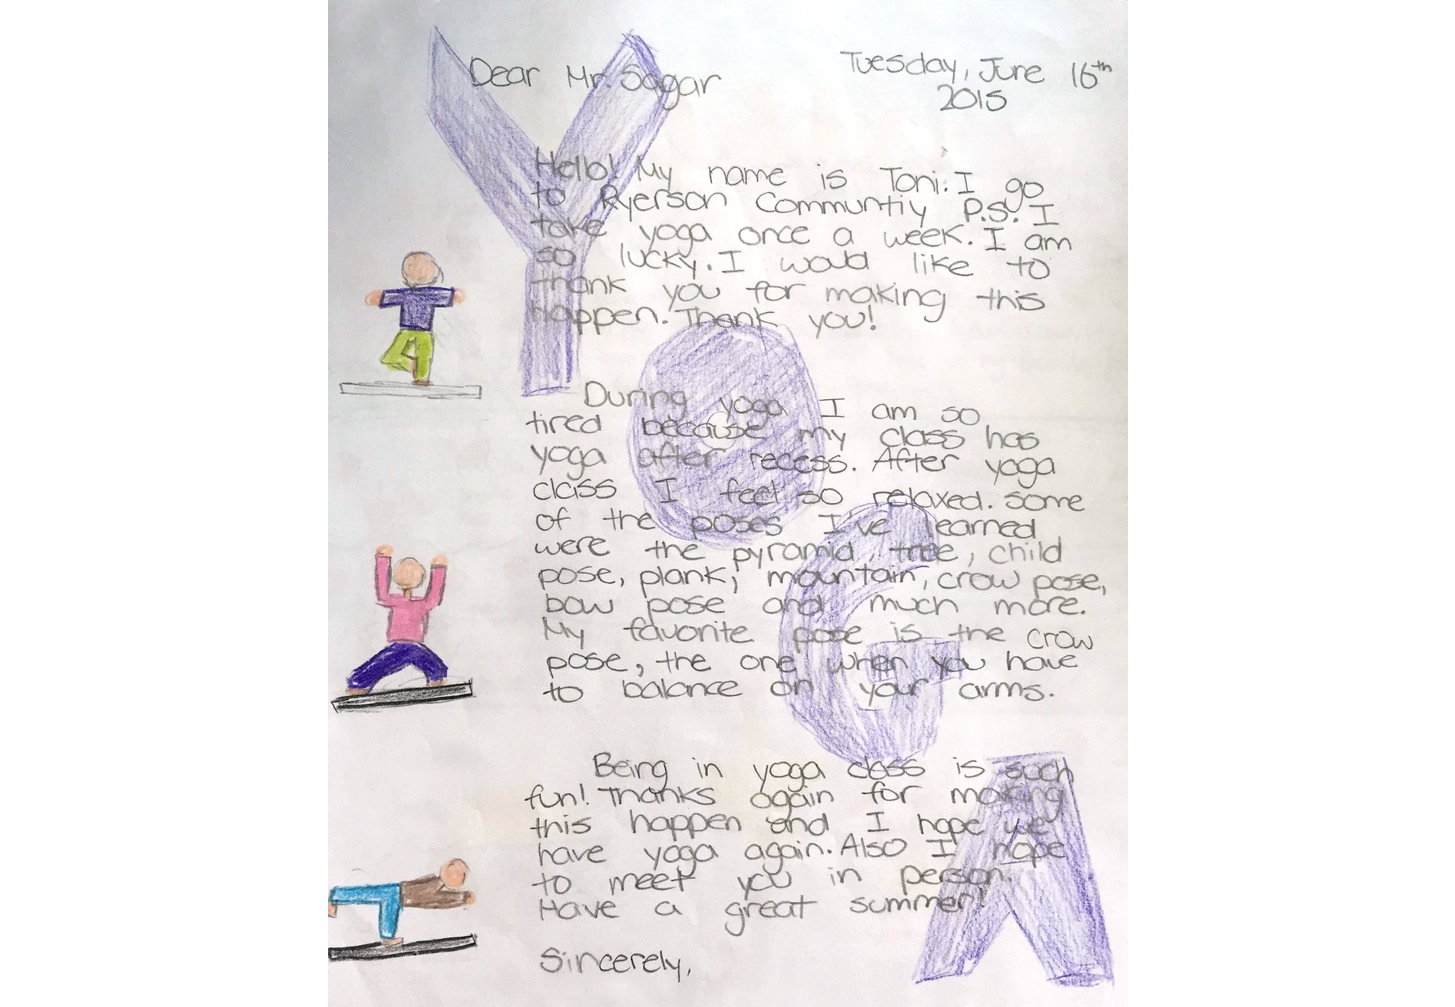 Dear Mr. Sagar
Tuesday, June 16th
2015
Hello! My name is Toni. I go
to Ryerson Communtiy P.S. I
take yoga once a week. I am
so lucky. I would like to
thank you for making this
happen. Thank you!
During yoga I am so
tired because my class has
yoga after recess. After yoga
class I feel so relaxed. Some
of the poses I've learned
were the pyramid, tree, child
pose, plank, mountain, crow pose,
bow pose and much more.
My favorite pose is the crow
pose, the one when you have
to balance on your arms.
Being in yoga class is such
fun! Thanks again for making
this happen and I hope we
have yoga again. Also I hope
to meet you in person.
Have a great summer!
Sincerely,
YOGA